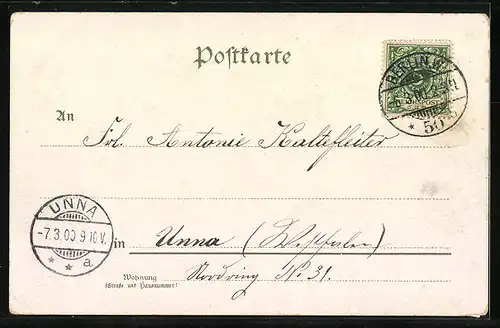 Postkarte
BERLIN.W.
* 50
An
Frl. Antonie Kaltefleiter
UNNA
-7.3.00.9-10.V.
* * a
in Unna (Westfalen)
Wohnung
(Straße und Hausnummer)
Nordring No. 31.